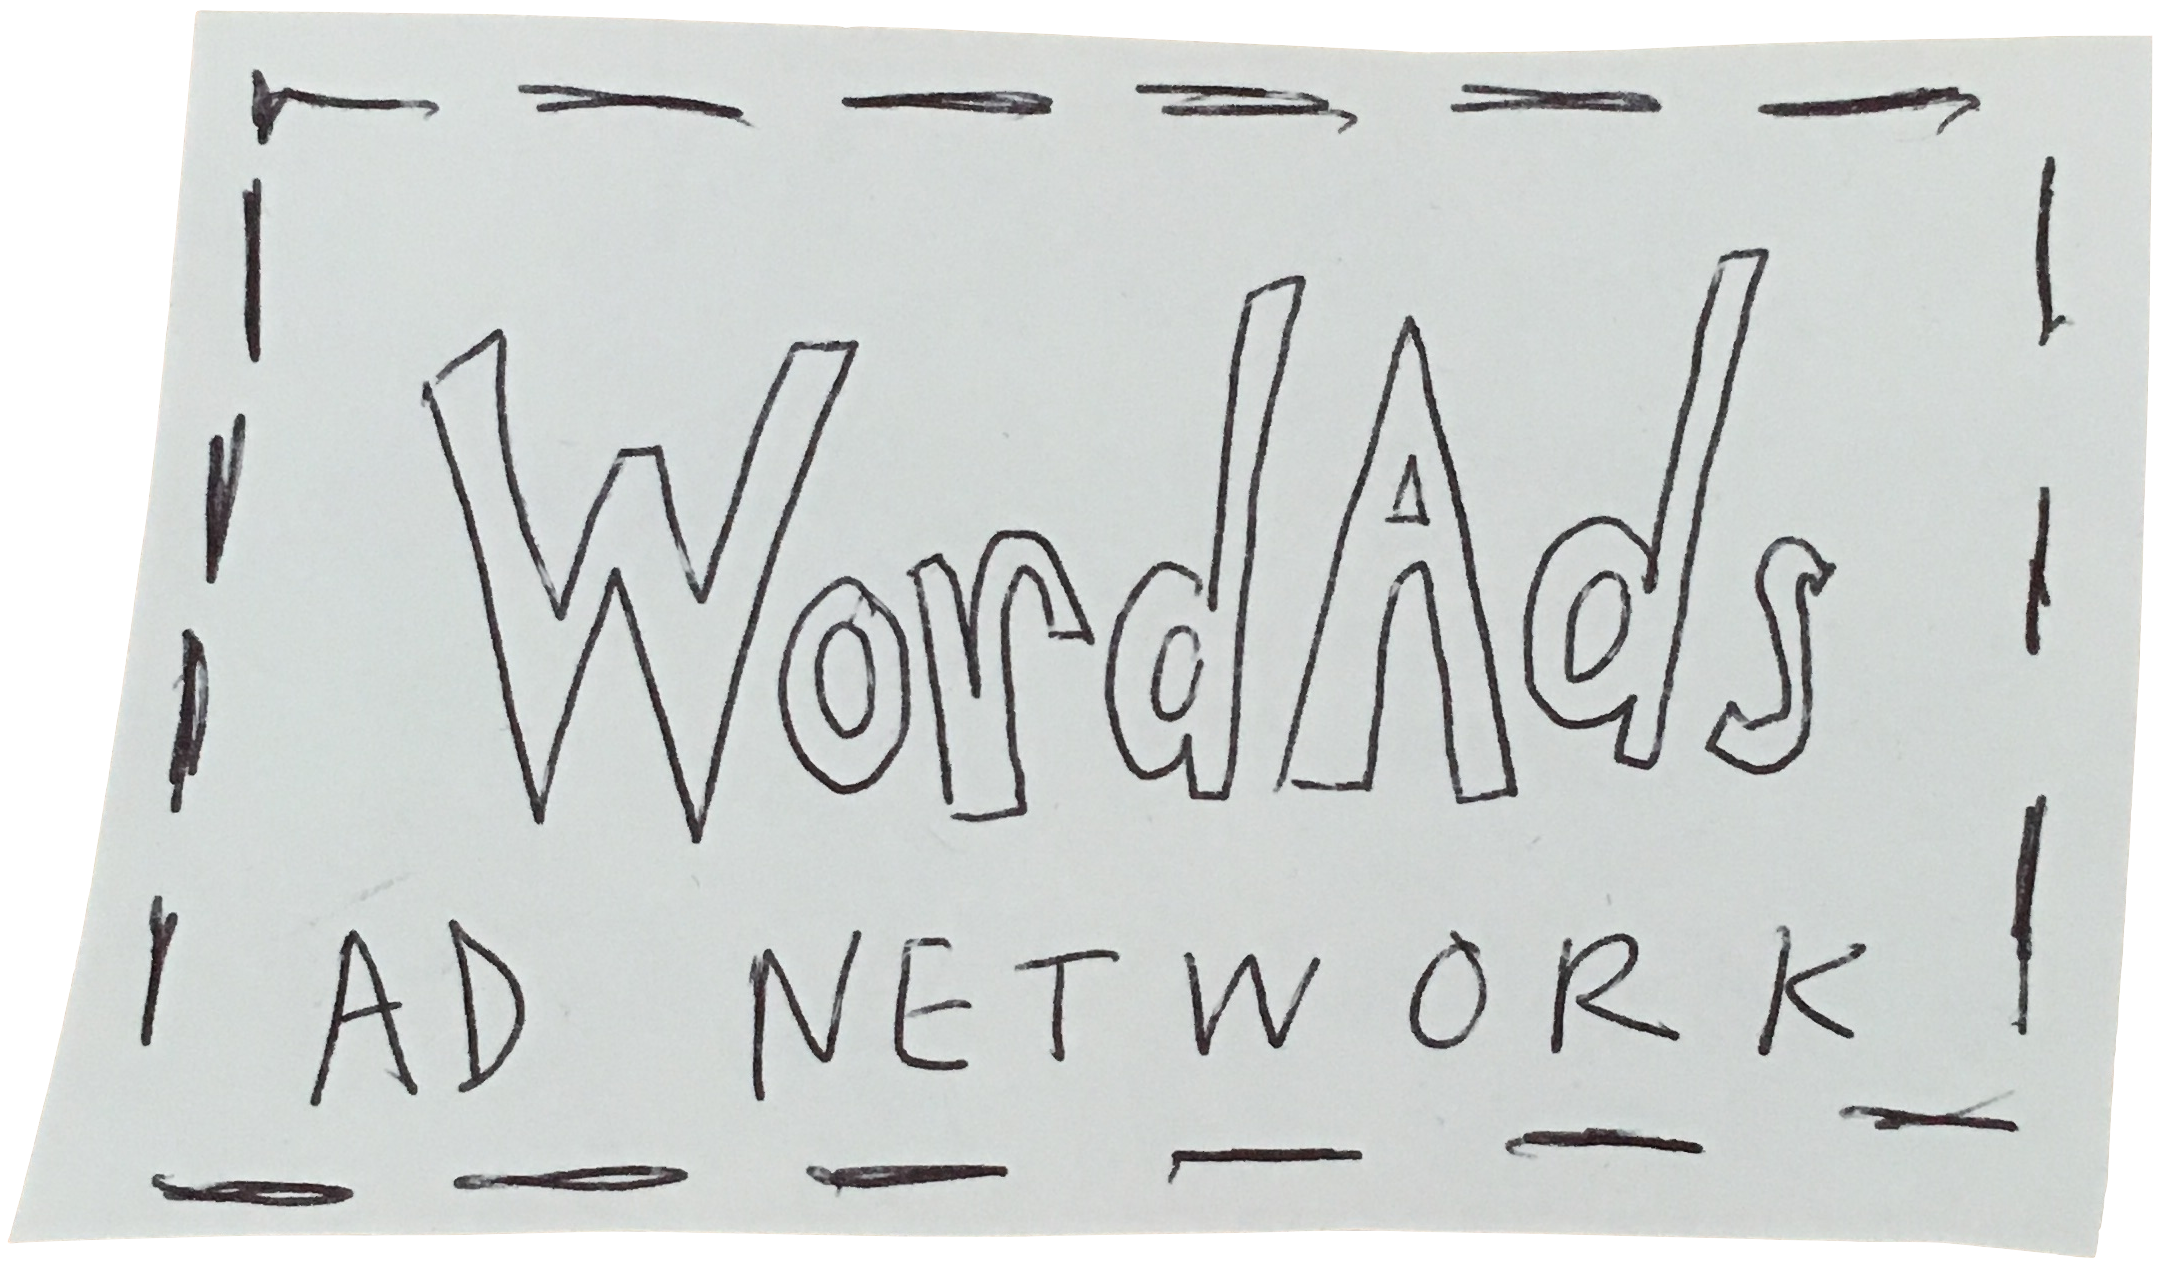 WordAds
AD NETWORK